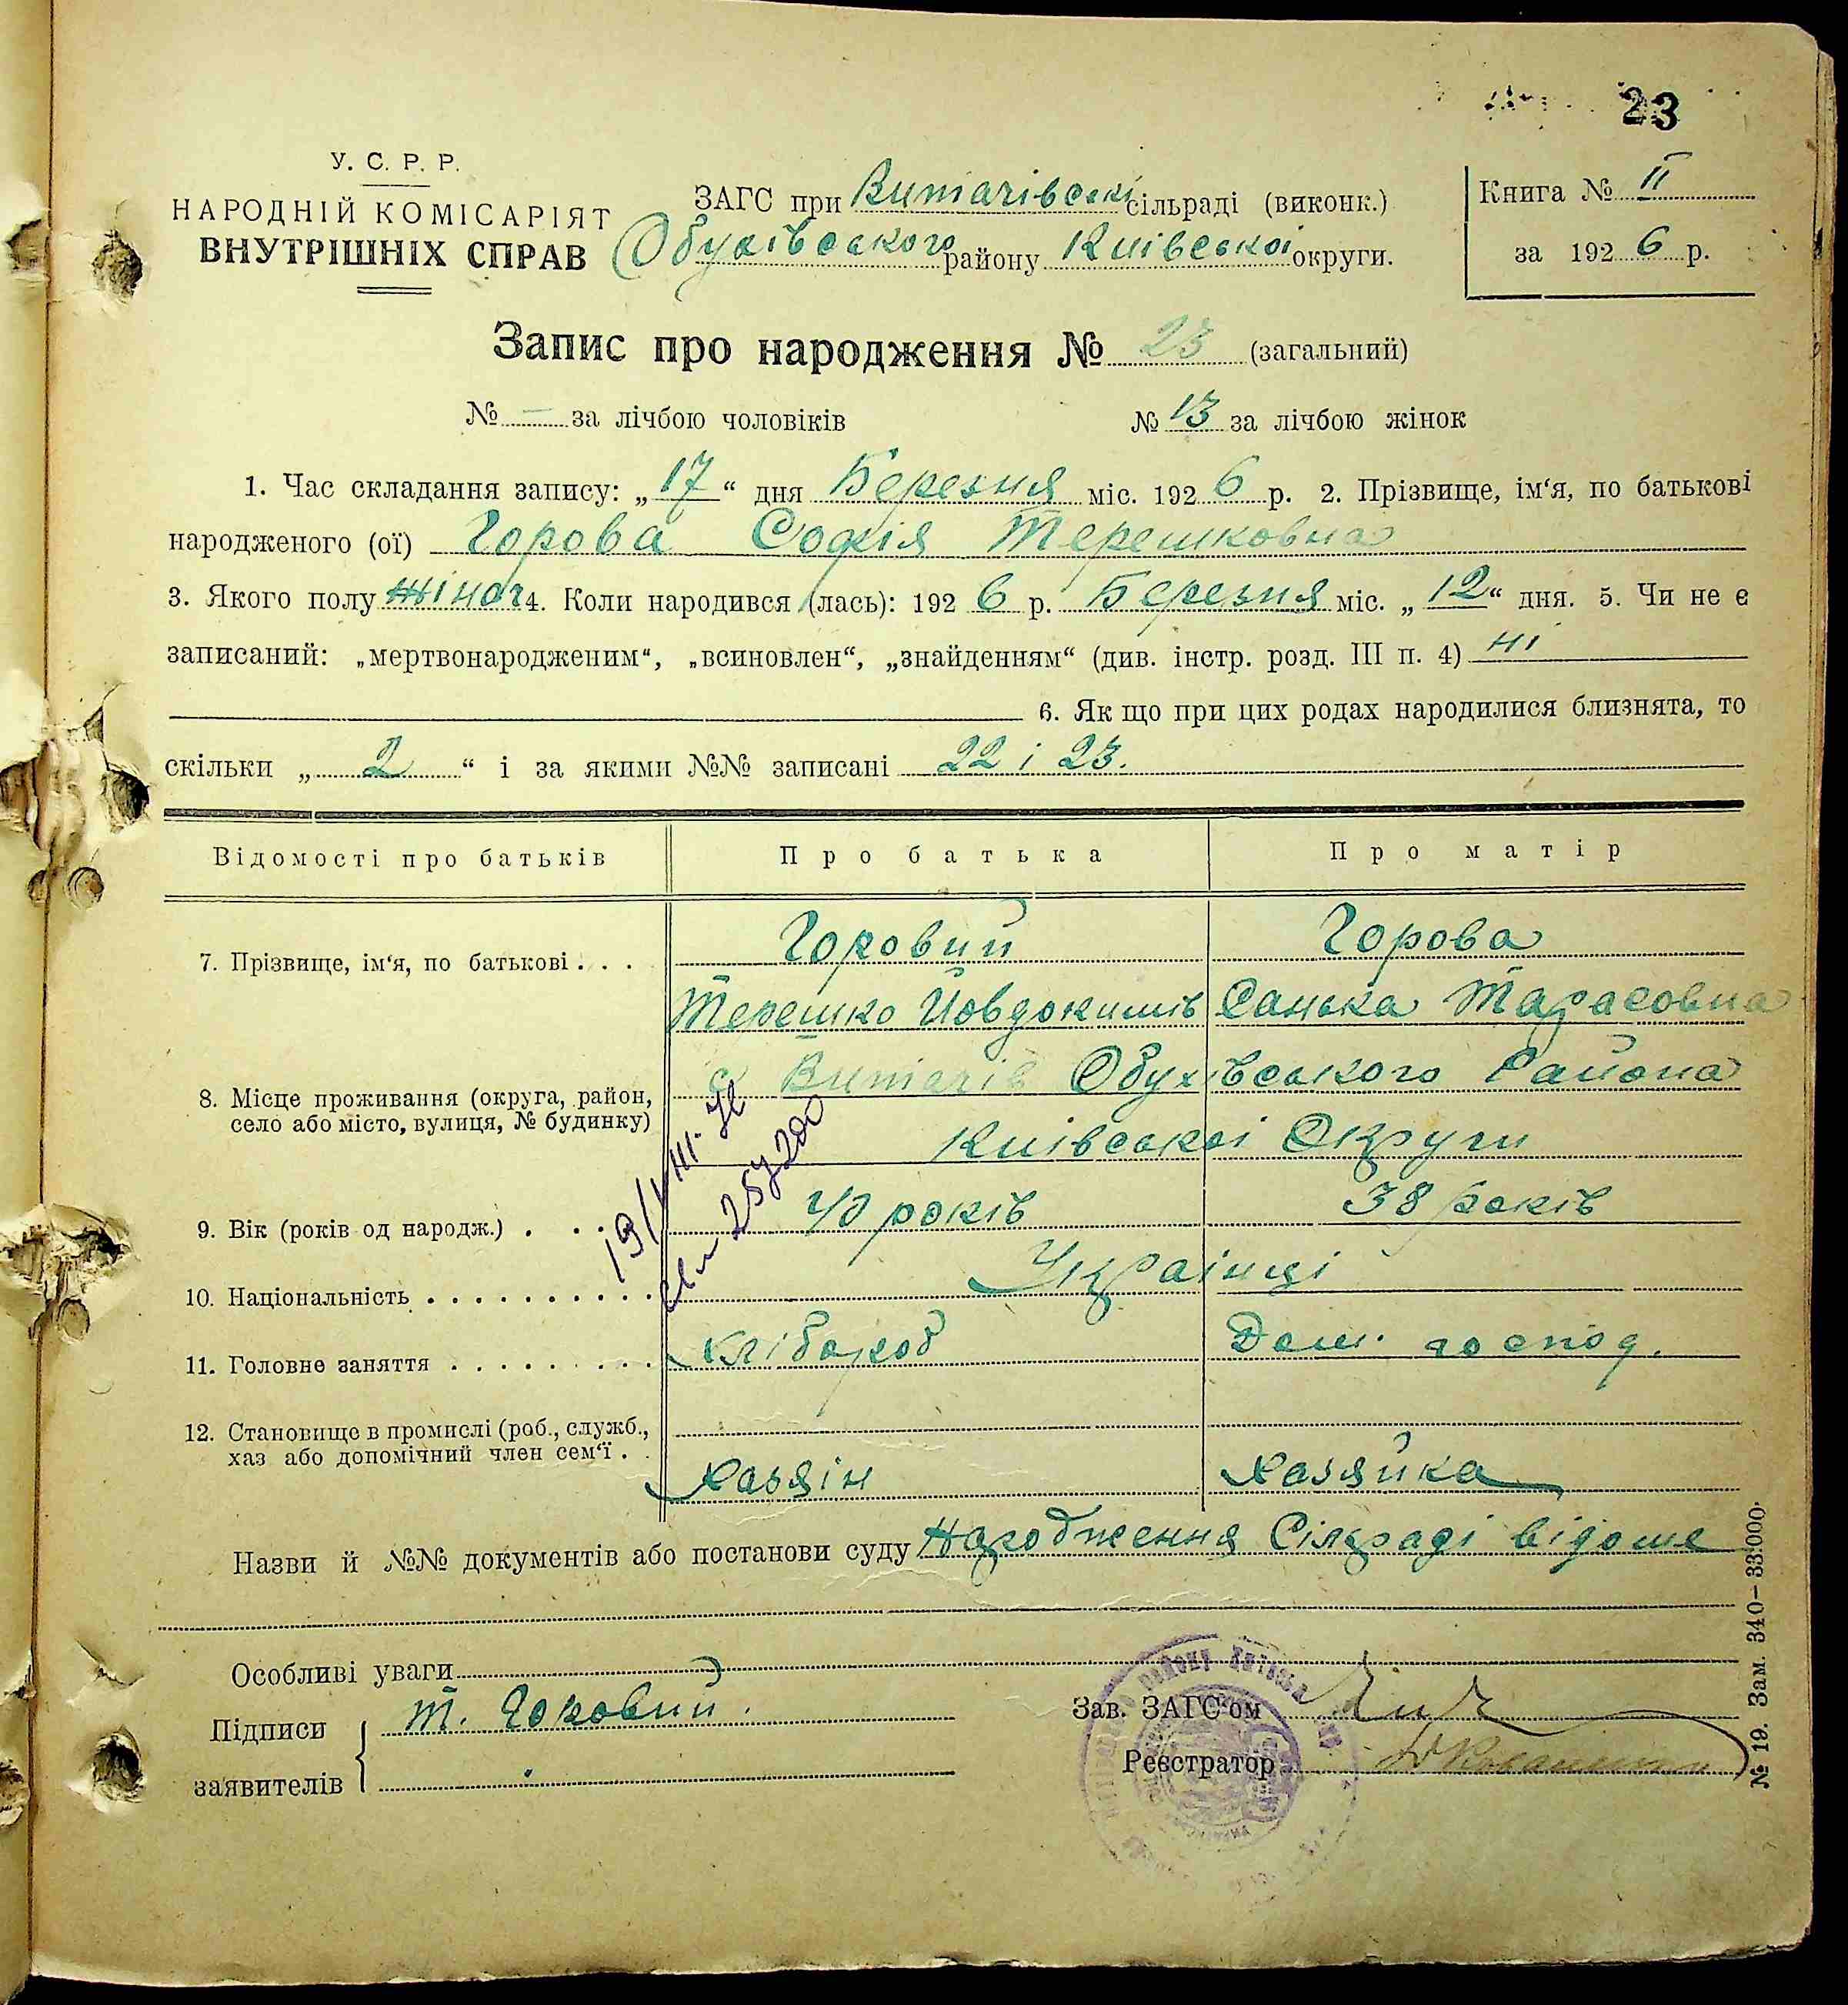 23
У. С. Р. Р.
НАРОДНІЙ КОМІСАРІЯТ
ВНУТРІШНІХ СПРАВ
ЗАГС при Витачівські сільраді (виконк.)
Обухівського району Київської округи.
Книга № II
за 1926 р.
Запис про народження № 23 (загальний)
№ — за лічбою чоловіків № 13 за лічбою жінок
1. Час складання запису: „17“ дня Березня міс. 1926 р. 2. Прізвище, ім‘я, по батькові
народженого (ої) Горова Софія Терешковна
3. Якого полу жіноч 4. Коли народився (лась): 1926 р. Березня міс. „12“ дня. 5. Чи не є
записаний: „мертвонародженим“, „всиновлен“, „знайденням“ (див. інстр. розд. III п. 4) ні
6. Як що при цих родах народилися близнята, то
скільки „2“ і за якими №№ записані 22 і 23.
Відомості про батьків Про батька Про матір
7. Прізвище, ім‘я, по батькові . . . Горовий Горова
Терешко Йовдокимів Санька Тарасовна
8. Місце проживання (округа, район, село або місто, вулиця, № будинку) с Витачів Обухівського Района
Київської Округи
9. Вік (років од народж.) . . . 40 років 38 років
10. Національність . . . . . . . . . . Українці
11. Головне заняття . . . . . . . . . Хлібороб Дом. господ.
12. Становище в промислі (роб., служб.,
хаз або допомічний член сем‘ї . . Хазяін Хазяйка
Назви й №№ документів або постанови суду Народження Сілраді відоме
Особливі уваги
Підписи
заявителів
Т. Горовий.
Зав. ЗАГС‘ом
Реєстратор
№ 19. Зам. 340—33.000.